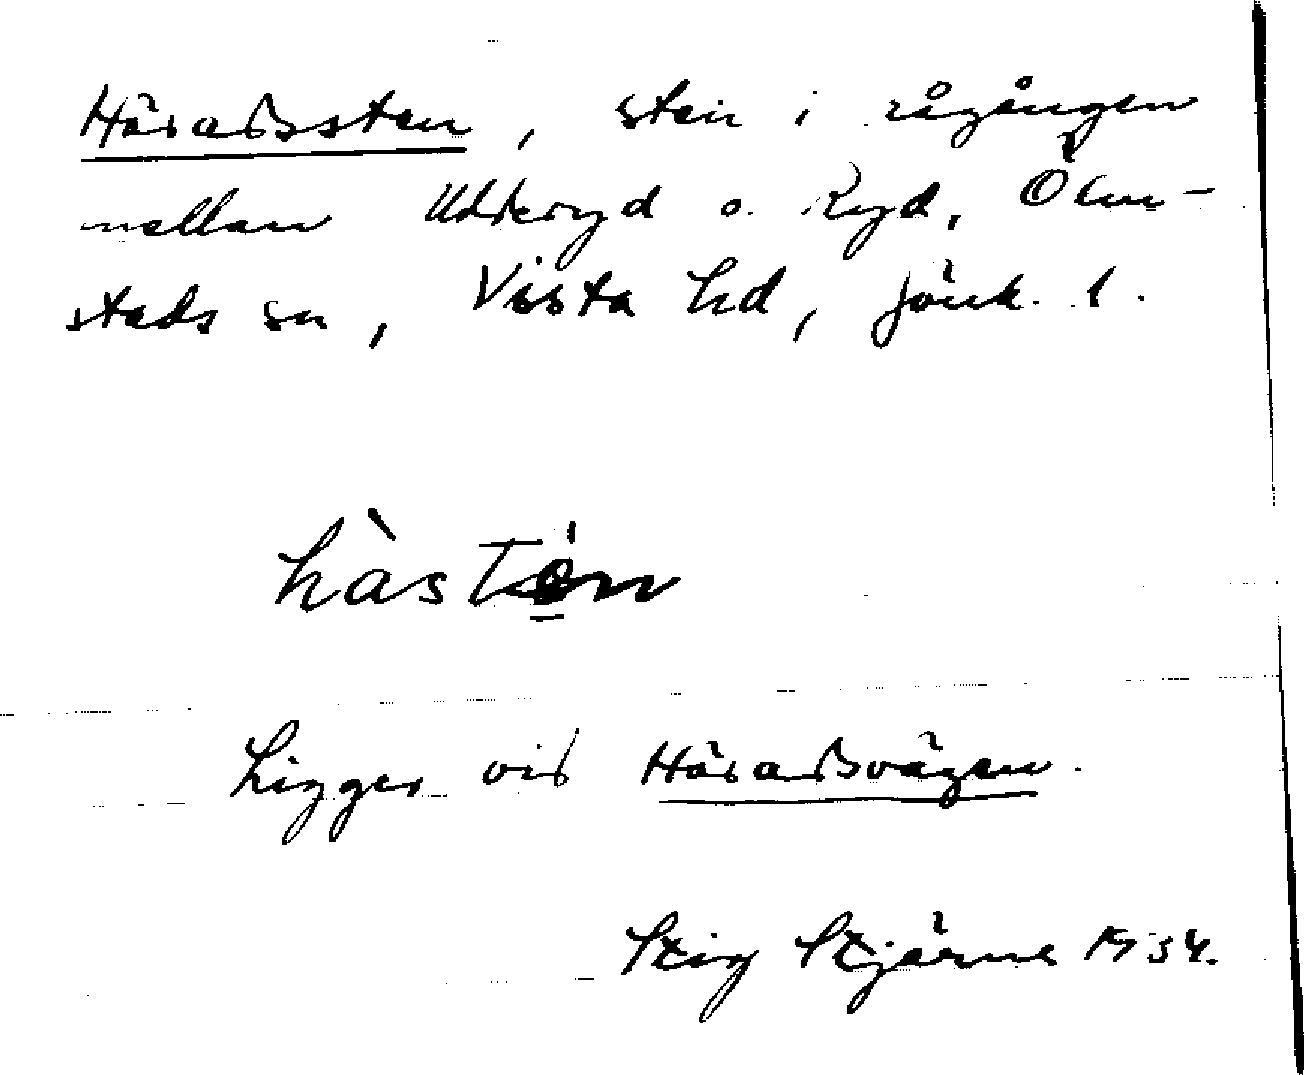 Häradssten, sten i rågången
mellan Udderyd o. Ryd, Ölm-
stads sn, Vista hd, Jönk. l.
Ligger vid Häradsvägen.
Stig Stjärne 1934.